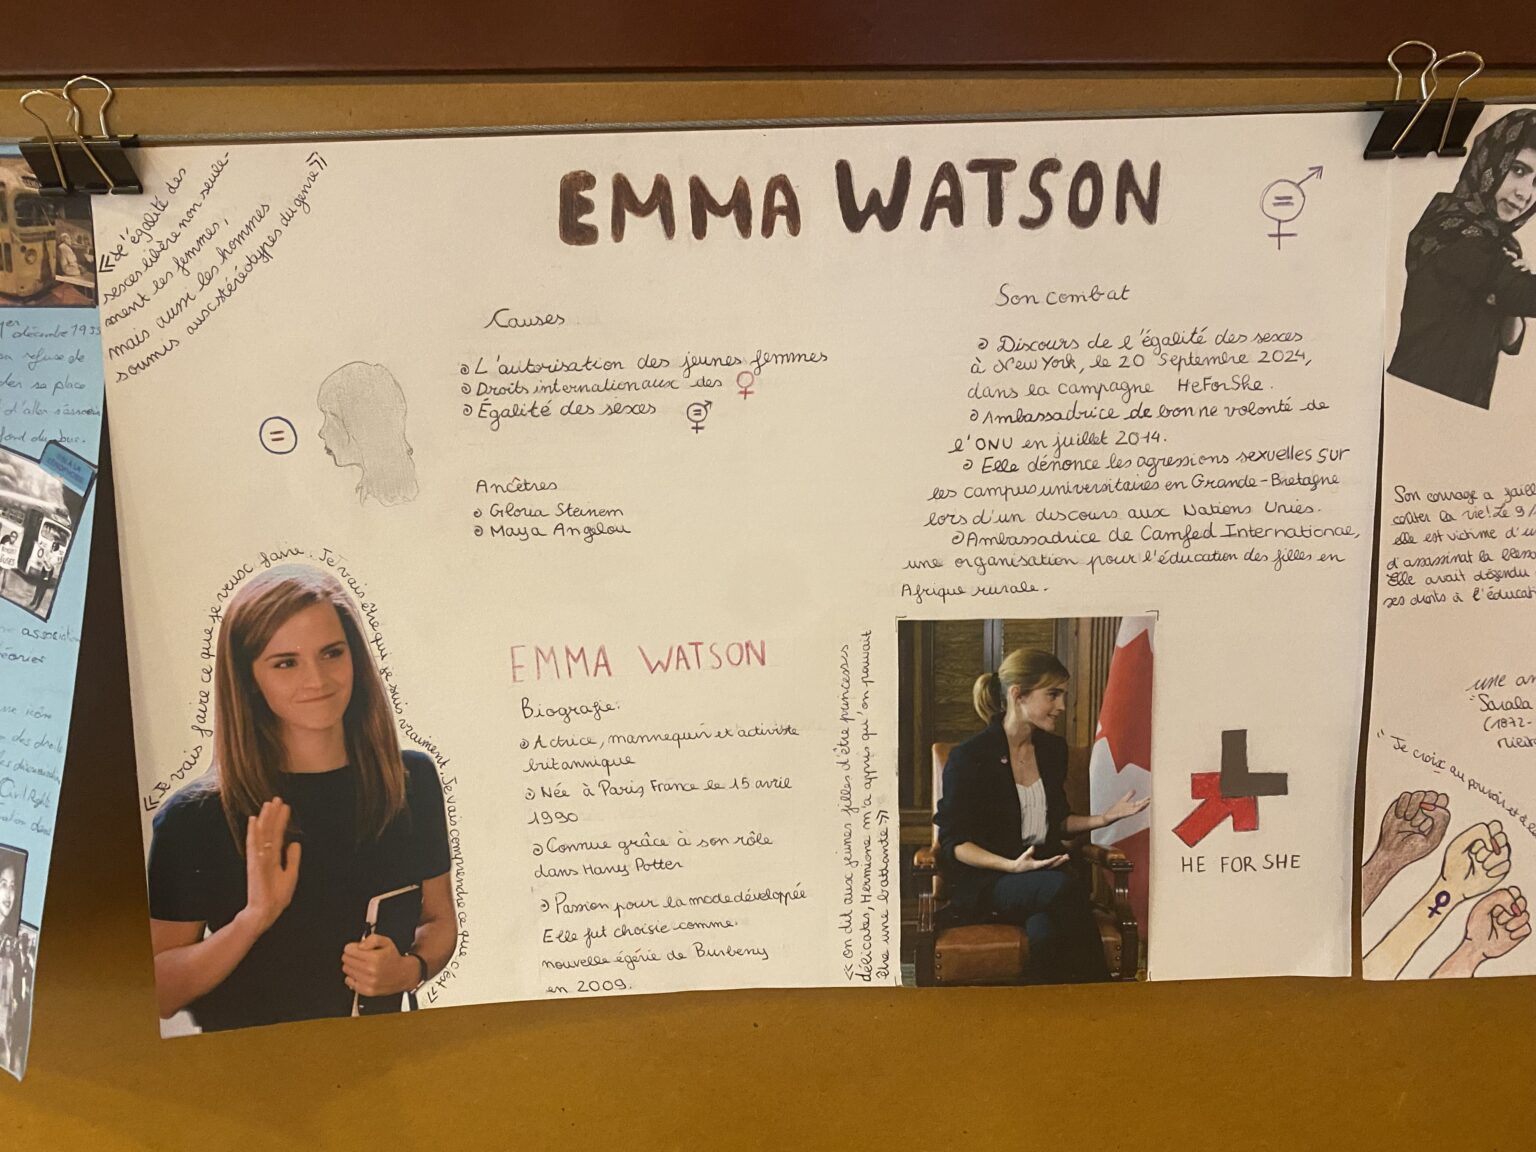 EMMA WATSON
« L'égalité des
sexes libère non seule-
ment les femmes,
mais aussi les hommes
soumis aux stéréotypes du genre »
Causes
L'autorisation des jeunes femmes
Droits internationaux des ♀
Égalité des sexes
=
Ancêtres
Gloria Steinem
Maya Angelou
Son combat
Discours de l'égalité des sexes
à New York, le 20 Septembre 2024,
dans la campagne HeForShe.
Ambassadrice de bonne volonté de
l'ONU en juillet 2014.
Elle dénonce les agressions sexuelles sur
les campus universitaires en Grande-Bretagne
lors d'un discours aux Nations Unies.
Ambassadrice de Camfed International,
une organisation pour l'éducation des filles en
Afrique rurale.
« Je vais faire ce que je veux faire. Je vais être qui je suis vraiment. Je vais comprendre ce que c'est »
EMMA WATSON
Biografie:
Actrice, mannequin et activiste
britannique
Née à Paris France le 15 avril
1990
Connue grâce à son rôle
dans Harry Potter
Passion pour la mode développée
Elle fut choisie comme.
nouvelle égérie de Burberry
en 2009.
« on dit aux jeunes filles d'être princesses
délicates, Hermione m'a appris qu'on pouvait
être une battante »
HE FOR SHE
décembre 1955
refuse de
sa place
d'aller s'asseoir
fond du bus.
association
des droits
Civil Right
Son courage a failli
coûter la vie! Le 9/
elle est victime d'un
d'assassinat la
Elle avait défendu
ses droits à l'éducat
une an
Sarala
(1872-
"Je crois au pouvoir et